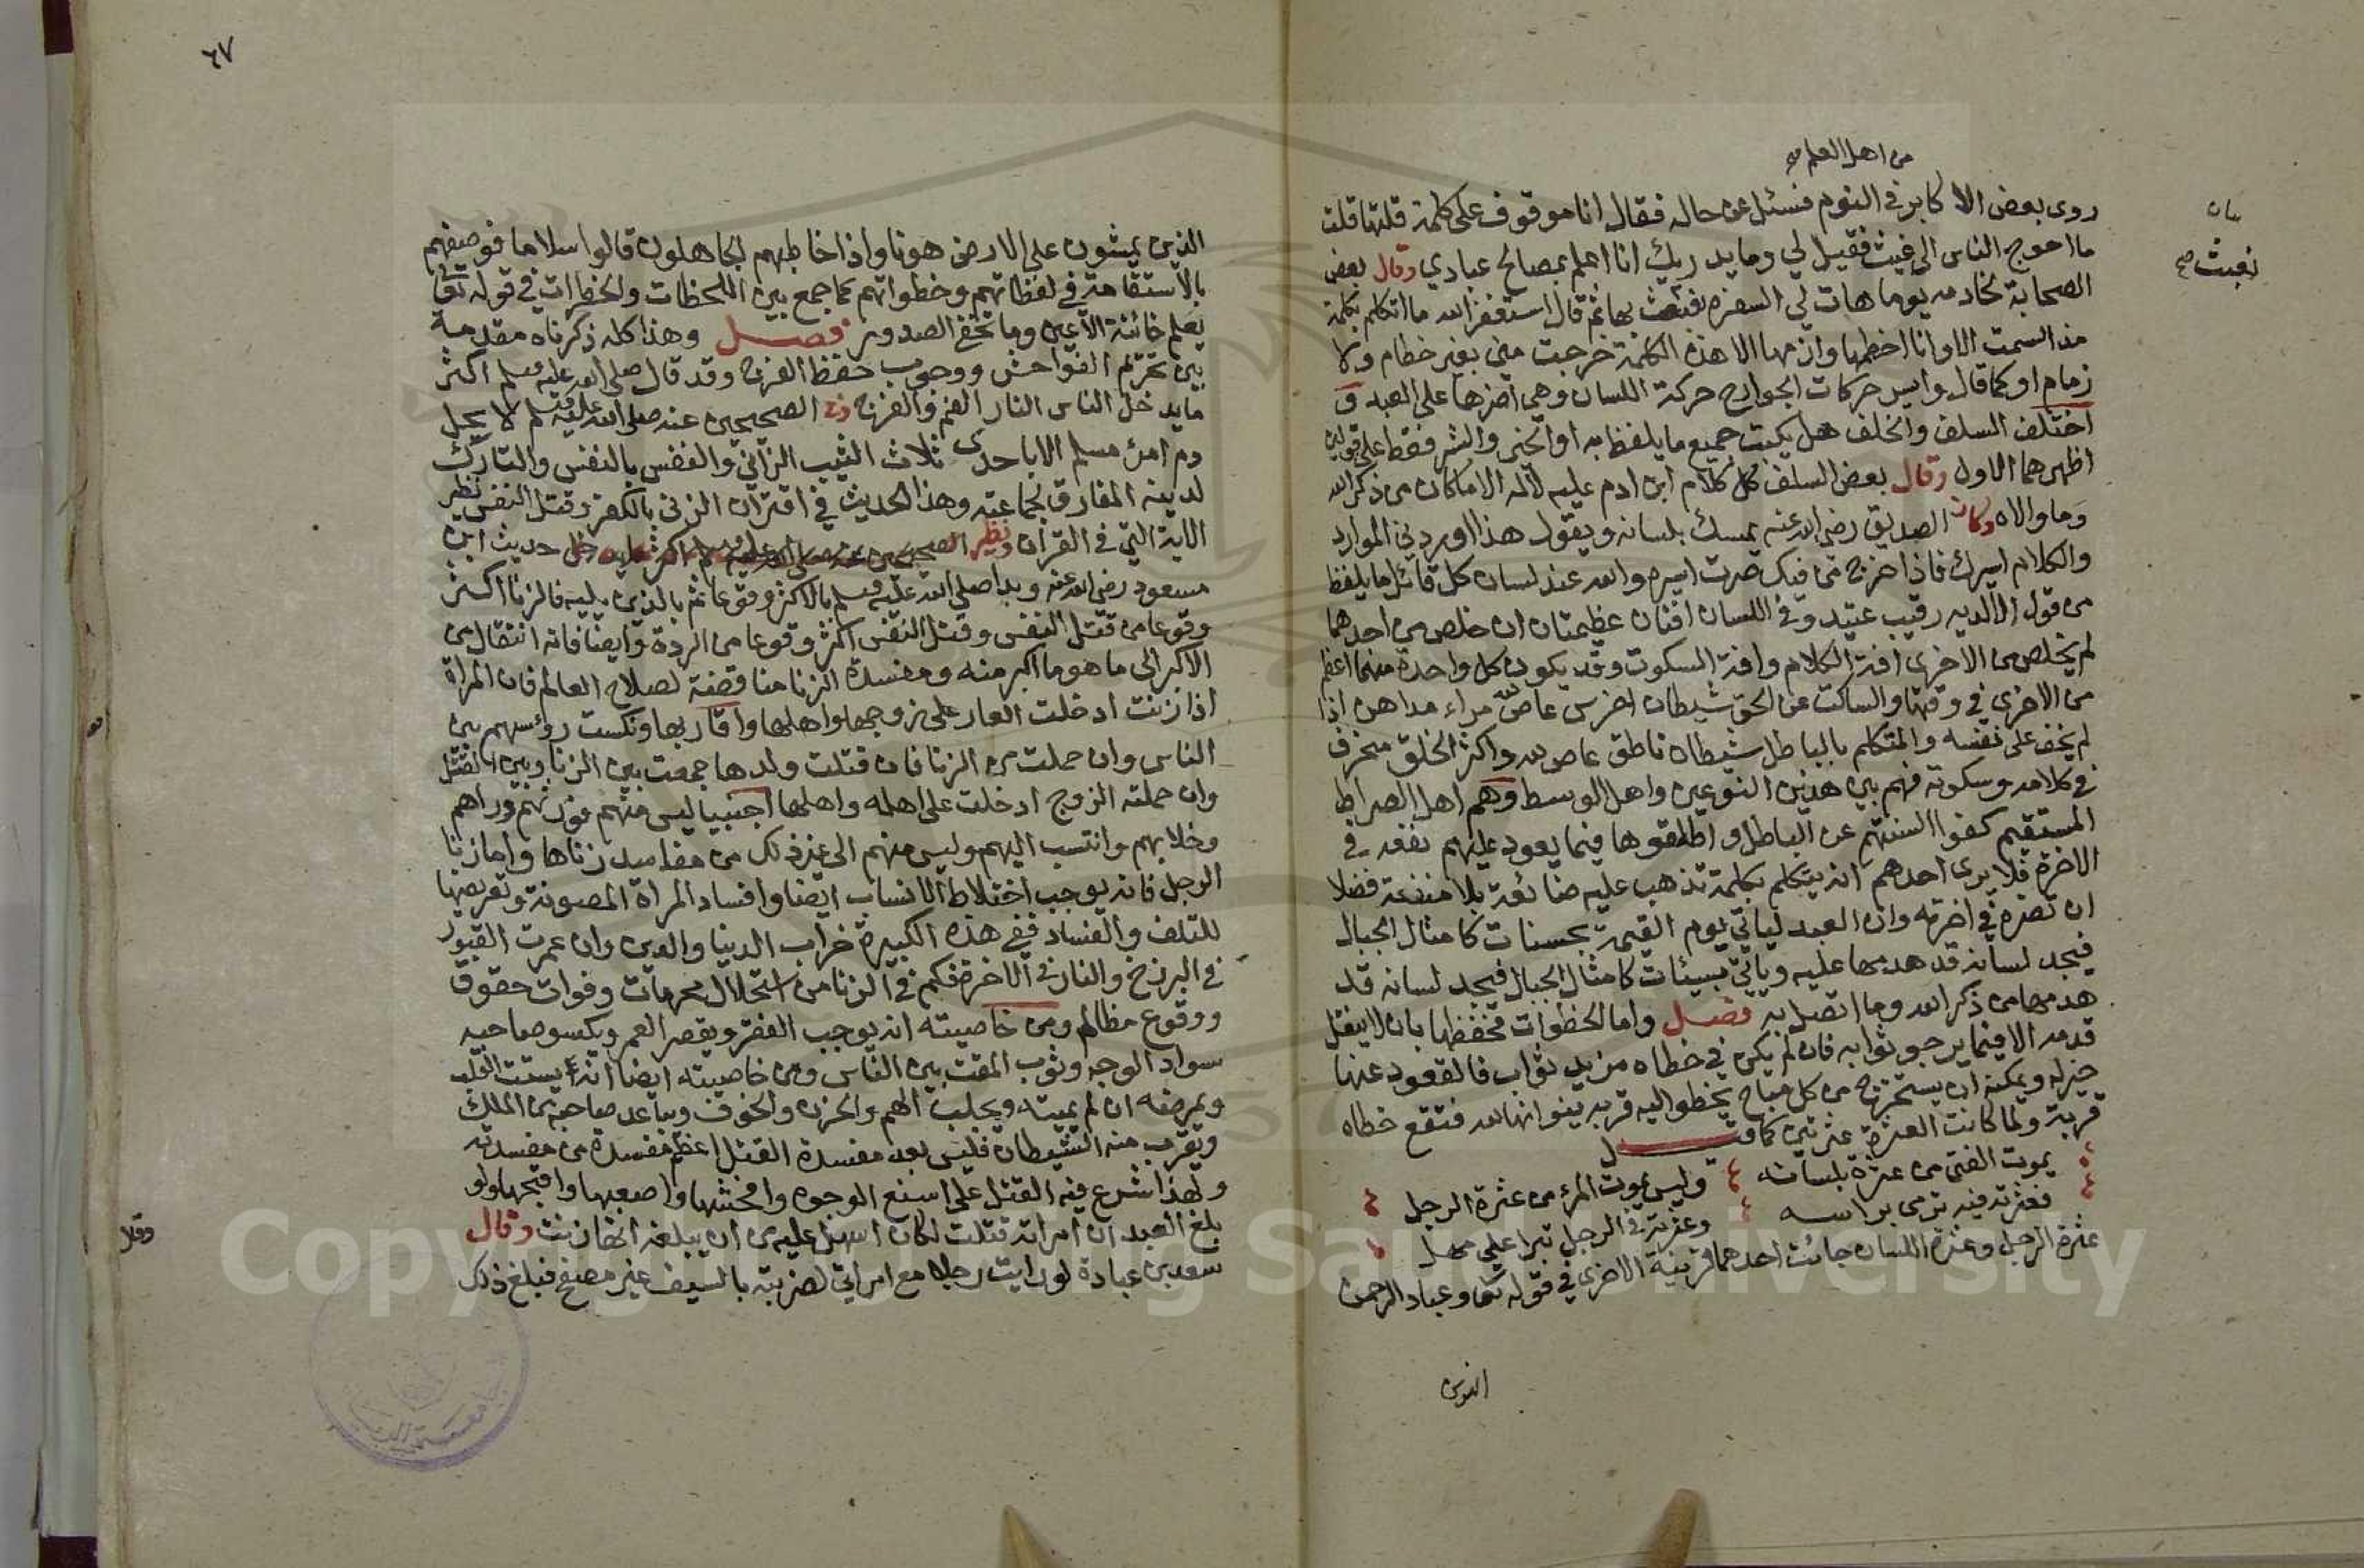 من اهل العلم صح
روى بعض الاكابر في النوم فسئل عن حاله فقال انا موقوف على كلمة قلتها قلت
ما احوج الناس الى غيث فقيل لي وما يدريك انا اعلم بمصالح عبادي وقال بعض
بيان
نعبث صح
الصحابة لخادمه يوما هات لي السفرة نعبث بها ثم قال استغفر الله ما اتكلم بكلمة
منذ اسلمت الا وانا اخطمها وازمها الا هذه الكلمة خرجت مني بغير خطام ولا
زمام او كما قال وايسر حركات الجوارح حركة اللسان وهي اضرها على العبد و
اختلف السلف والخلف هل يكتب جميع ما يلفظ به او الخير والشر فقط على قولين
اظهرهما الاول وقال بعض السلف كل كلام ابن ادم عليه لا له الا ما كان من ذكر الله
وما والاه وكان الصديق رضي الله عنه يمسك بلسانه ويقول هذا اوردني الموارد
والكلام اسيرك فاذا خرج من فيك صرت اسيره والله عند لسان كل قائل ما يلفظ
من قول الا لديه رقيب عتيد وفي اللسان افتان عظيمتان ان خلص من احدهما
لم يخلص من الاخرى افة الكلام وافة السكوت وقد يكون كل واحدة منهما اعظم
من الاخرى في وقتها والساكت عن الحق شيطان اخرس عاص لله مراء مداهن اذا
لم يخف على نفسه والمتكلم بالباطل شيطان ناطق عاص لله واكثر الخلق منحرف
في كلامه وسكوته فهم بين هذين النوعين واهل الوسط وهم اهل الصراط
المستقيم كفوا السنتهم عن الباطل واطلقوها فيما يعود عليهم نفعه في
الاخرة فلا يرى احدهم انه يتكلم بكلمة تذهب عليه ضائعة بلا منفعة فضلا
ان تضره في اخرته وان العبد لياتي يوم القيمة بحسنات كامثال الجبال
فيجد لسانه قد هدمها عليه وياتي بسيئات كامثال الجبال فيجد لسانه قد
هدمها من ذكر الله وما اتصل به فصل واما الخطوات فحفظها بان لا ينقل
قدمه الا فيما يرجو ثوابه فان لم يكن في خطاه مزيد ثواب فالقعود عنها
خير له ويمكنه ان يستخرج من كل مباح يخطو اليه قربة ينوانها لله فتقع خطاه
قربة ولما كانت العثرة عثرتين كما قيل
يموت الفتى من عثرة بلسانه وليس يموت المرء من عثرة الرجل
فعثرته فيه ترمى براسه وعثرته في الرجل تبرا على مهل
عثرة الرجل وعثرة اللسان جائت احدهما قرينة الاخرى في قوله تعا وعباد الرحمن
الذين
٦٧
الذين يمشون على الارض هونا واذا خاطبهم الجاهلون قالوا سلاما فوصفهم
بالاستقامة في لفظاتهم وخطواتهم كما جمع بين اللحظات والخطرات في قوله تعا
يعلم خائنة الاعين وما تخفي الصدور فصل وهذا كله ذكرناه مقدمة
بين تحريم الفواحش ووجوب حفظ الفرج وقد قال صلى الله عليه وسلم اكثر
ما يدخل الناس النار الفم والفرج وفي الصحيحين عنه صلى الله عليه وسلم لا يحل
دم امرئ مسلم الا باحدى ثلاث الثيب الزاني والنفس بالنفس والتارك
لدينه المفارق لجماعته وهذا الحديث في اقتران الزنى بالكفر وقتل النفس نظير
الاية التي في القران ونظير حديث ابن
مسعود رضي الله عنه وبدا صلى الله عليه وسلم بالاكثر وقوعا ثم بالذي يليه فالزنا اكثر
وقوعا من قتل النفس وقتل النفس اكثر وقوعا من الردة وايضا فانه انتقال من
الاكبر الى ما هو ما اكبر منه ومفسدة الزنا مناقضة لصلاح العالم فان المراة
اذا زنت ادخلت العار على زوجها واهلها واقاربها ونكست رؤسهم بين
الناس وان حملت من الزنا فان قتلت ولدها جمعت بين الزنا وبين القتل
وان حملته الزوج ادخلت على اهله واهلها اجنبيا ليس منهم فورثهم وراهم
وخلا بهم وانتسب اليهم وليس منهم الى غير ذلك من مفاسد زناها واما زنا
الرجل فانه يوجب اختلاط الانساب ايضا وافساد المراة المصونة وتعريضها
للتلف والفساد ففي هذه الكبيرة خراب الدنيا والدين وان عمرت القبور
في البرزخ والنار في الاخرة فكم في الزنا من استحلال محرمات وفوات حقوق
ووقوع مظالم ومن خاصيته انه يوجب الفقر ويقصر العمر ويكسو صاحبه
سواد الوجه وثوب المقت بين الناس ومن خاصيته ايضا انه يشتت القلب
ويمرضه ان لم يميته ويجلب الهم والحزن والخوف ويباعد صاحبه من الملك
ويقرب منه الشيطان فليس بعد مفسدة القتل اعظم مفسدة من مفسدته
ولهذا شرع فيه القتل على اشنع الوجوه وافحشها واصعبها واقبحها ولو
بلغ العبد ان امراته قتلت لكان اسهل عليه من ان يبلغه انها زنت وقال
سعد بن عبادة لو رايت رجلا مع امراتي لضربته بالسيف غير مصفح فبلغ ذلك
Copyright © King Saud University